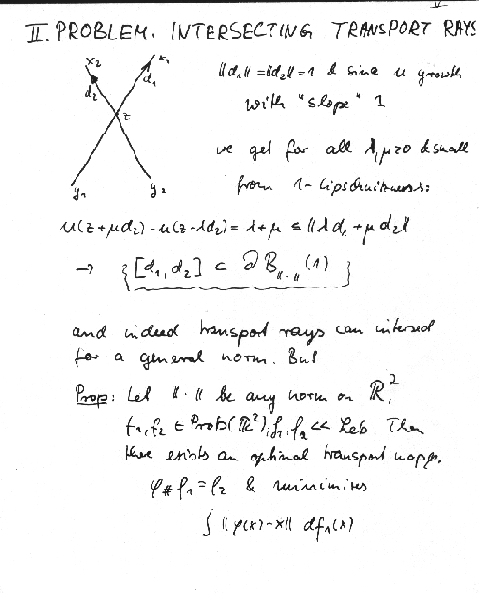 V
II. PROBLEM. INTERSECTING TRANSPORT RAYS
x₂ x₁
d₂ d₁
z
y₁ y₂
‖d₁‖=‖d₂‖=1 & since u growth
with "slope" 1
we get for all λ,μ≥0 & small
from 1-Lipschitzness:
u(z+μd₂)-u(z-λd₂)=λ+μ ≤ ‖λd₁+μd₂‖
→ {[d₁,d₂] ⊂ ∂B‖·‖(1)}
and indeed transport rays can intersect
for a general norm. But
Prop: Let ‖·‖ be any norm on ℝ²,
f₁,f₂ ∈ Prob(ℝ²), f₁,f₂ << Leb. Then
there exists an optimal transport mapp.
φ#f₁=f₂ & minimizes
∫‖φ(x)-x‖ df₁(x)